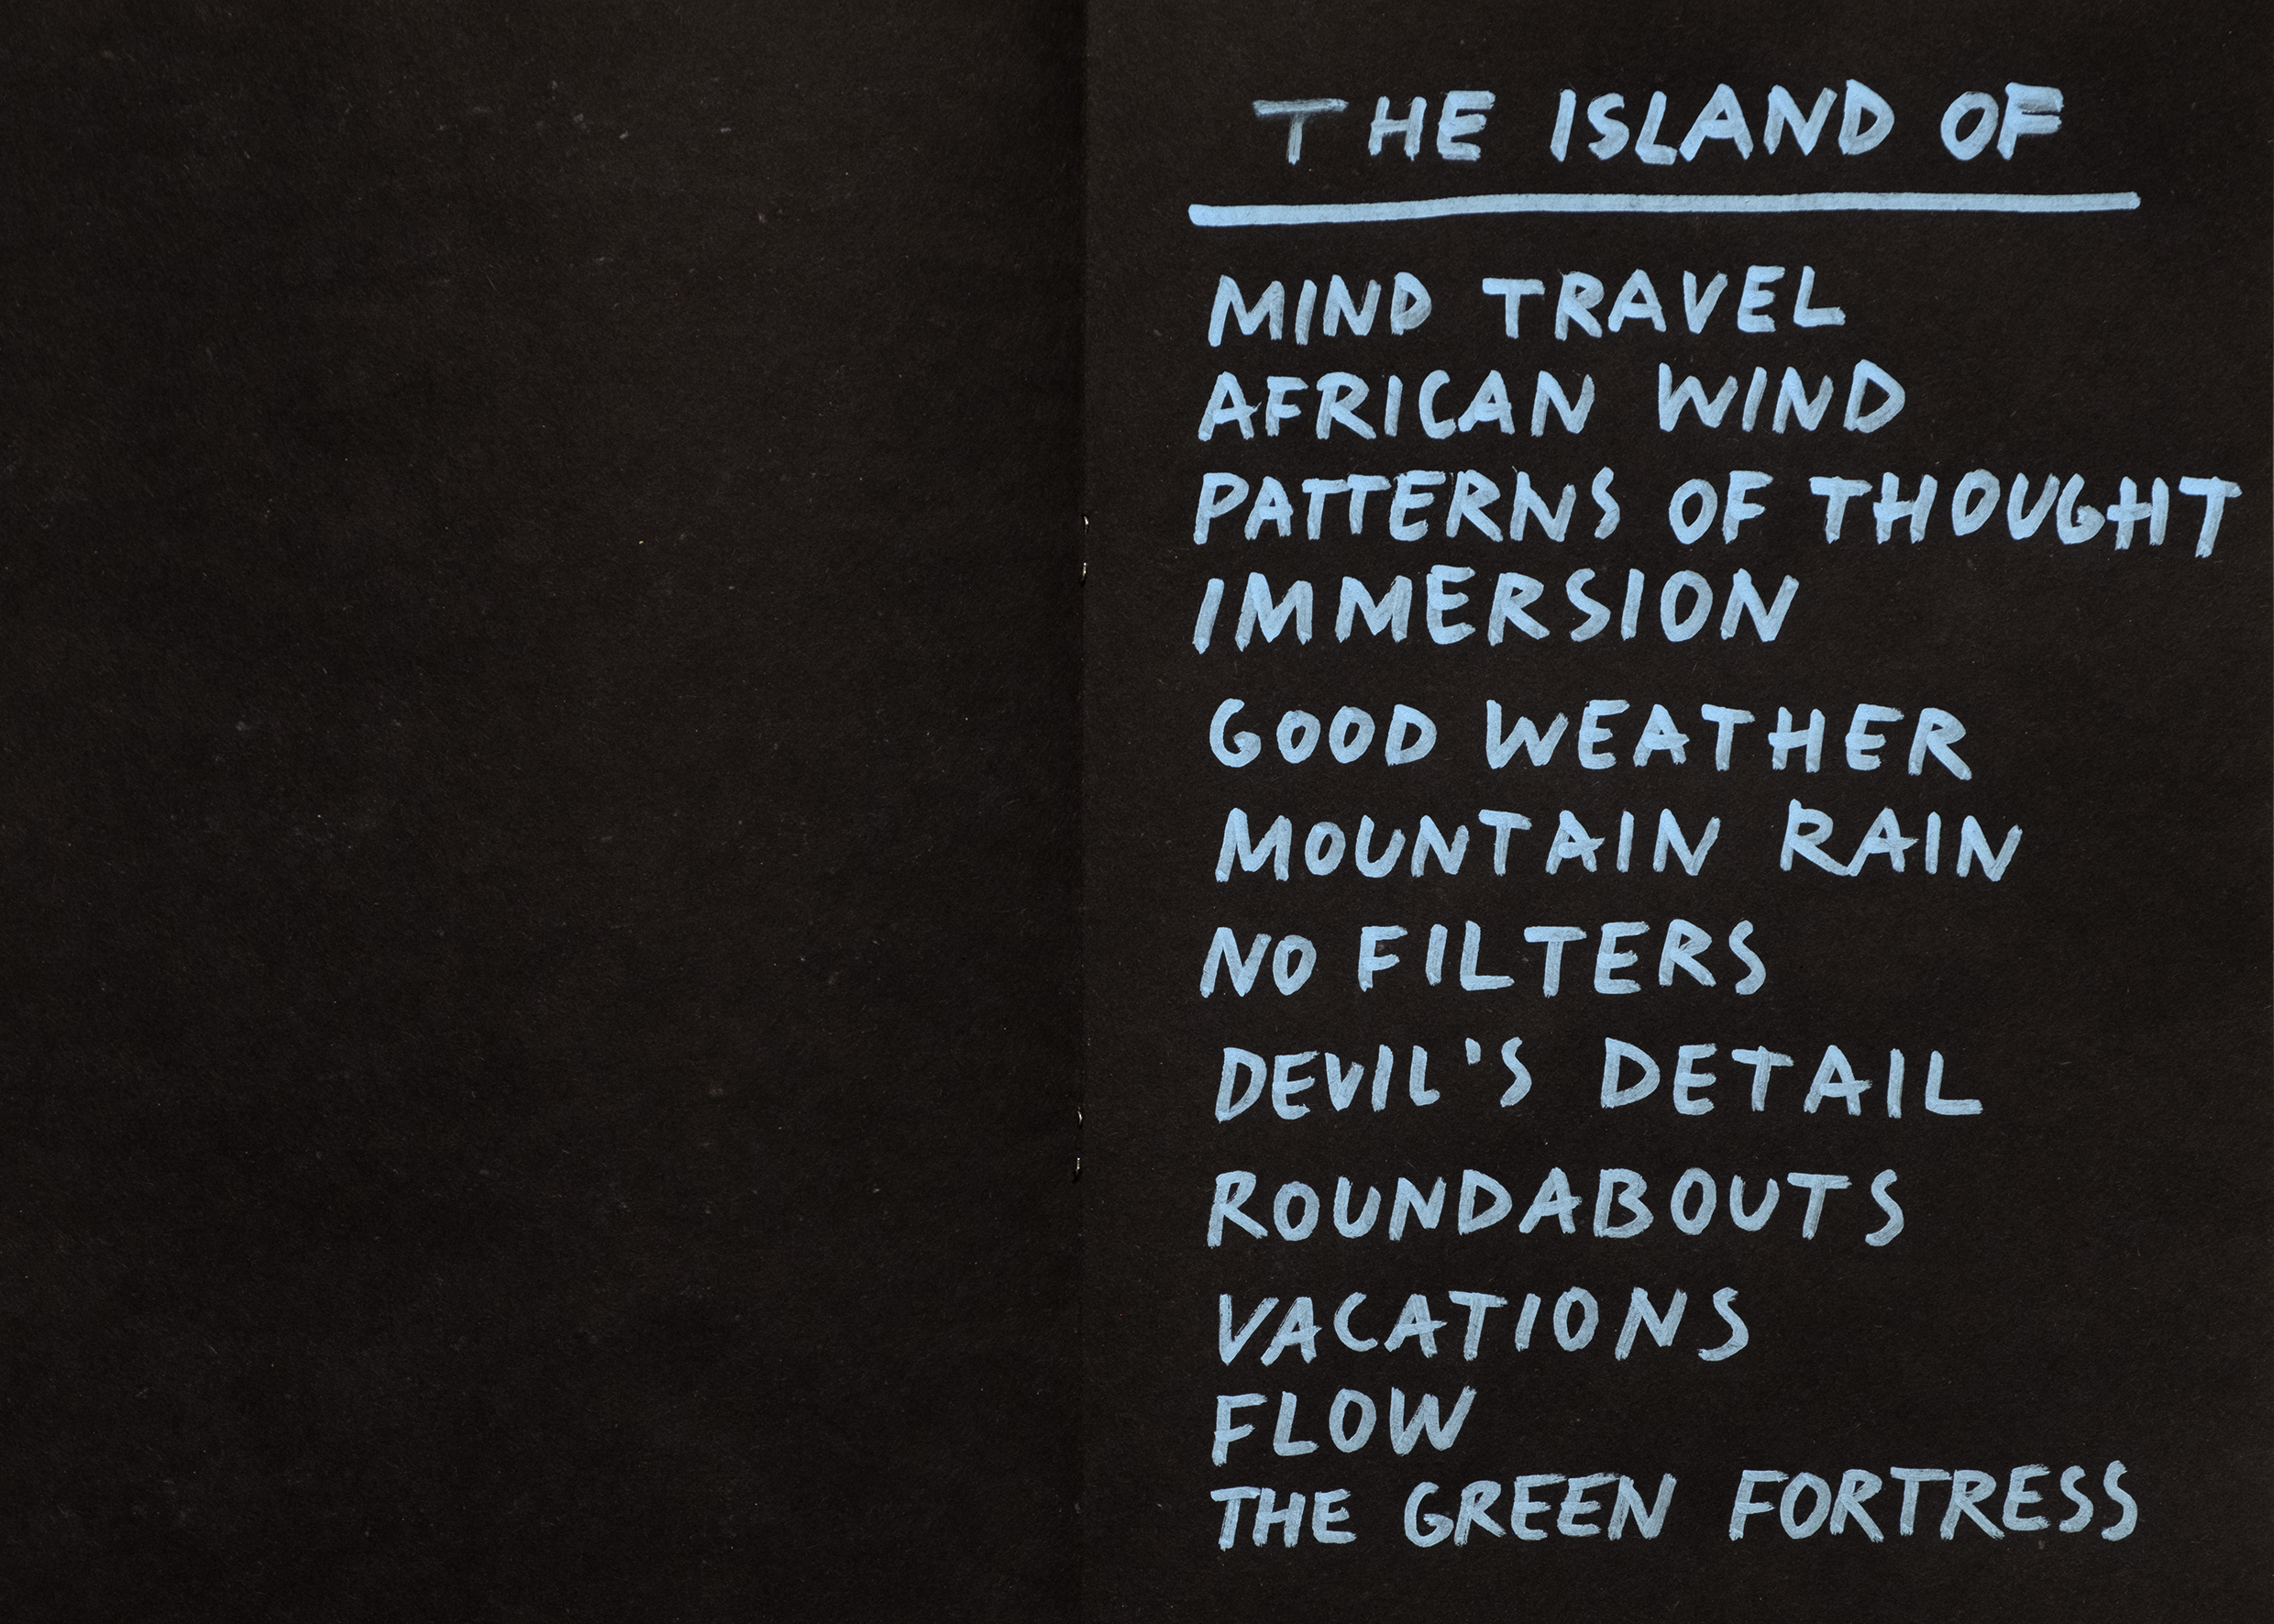 THE ISLAND OF
MIND TRAVEL
AFRICAN WIND
PATTERNS OF THOUGHT
IMMERSION
GOOD WEATHER
MOUNTAIN RAIN
NO FILTERS
DEVIL'S DETAIL
ROUNDABOUTS
VACATIONS
FLOW
THE GREEN FORTRESS